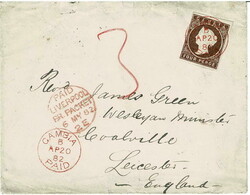 GAMBIA
AP 20
82
FOUR PENCE
3
PAID
LIVERPOOL
BR. PACKET
6 MY 82
GAMBIA
B
AP 20
82
PAID
Revd. James Green
Wesleyan Minister
Coalville
Leicester
England